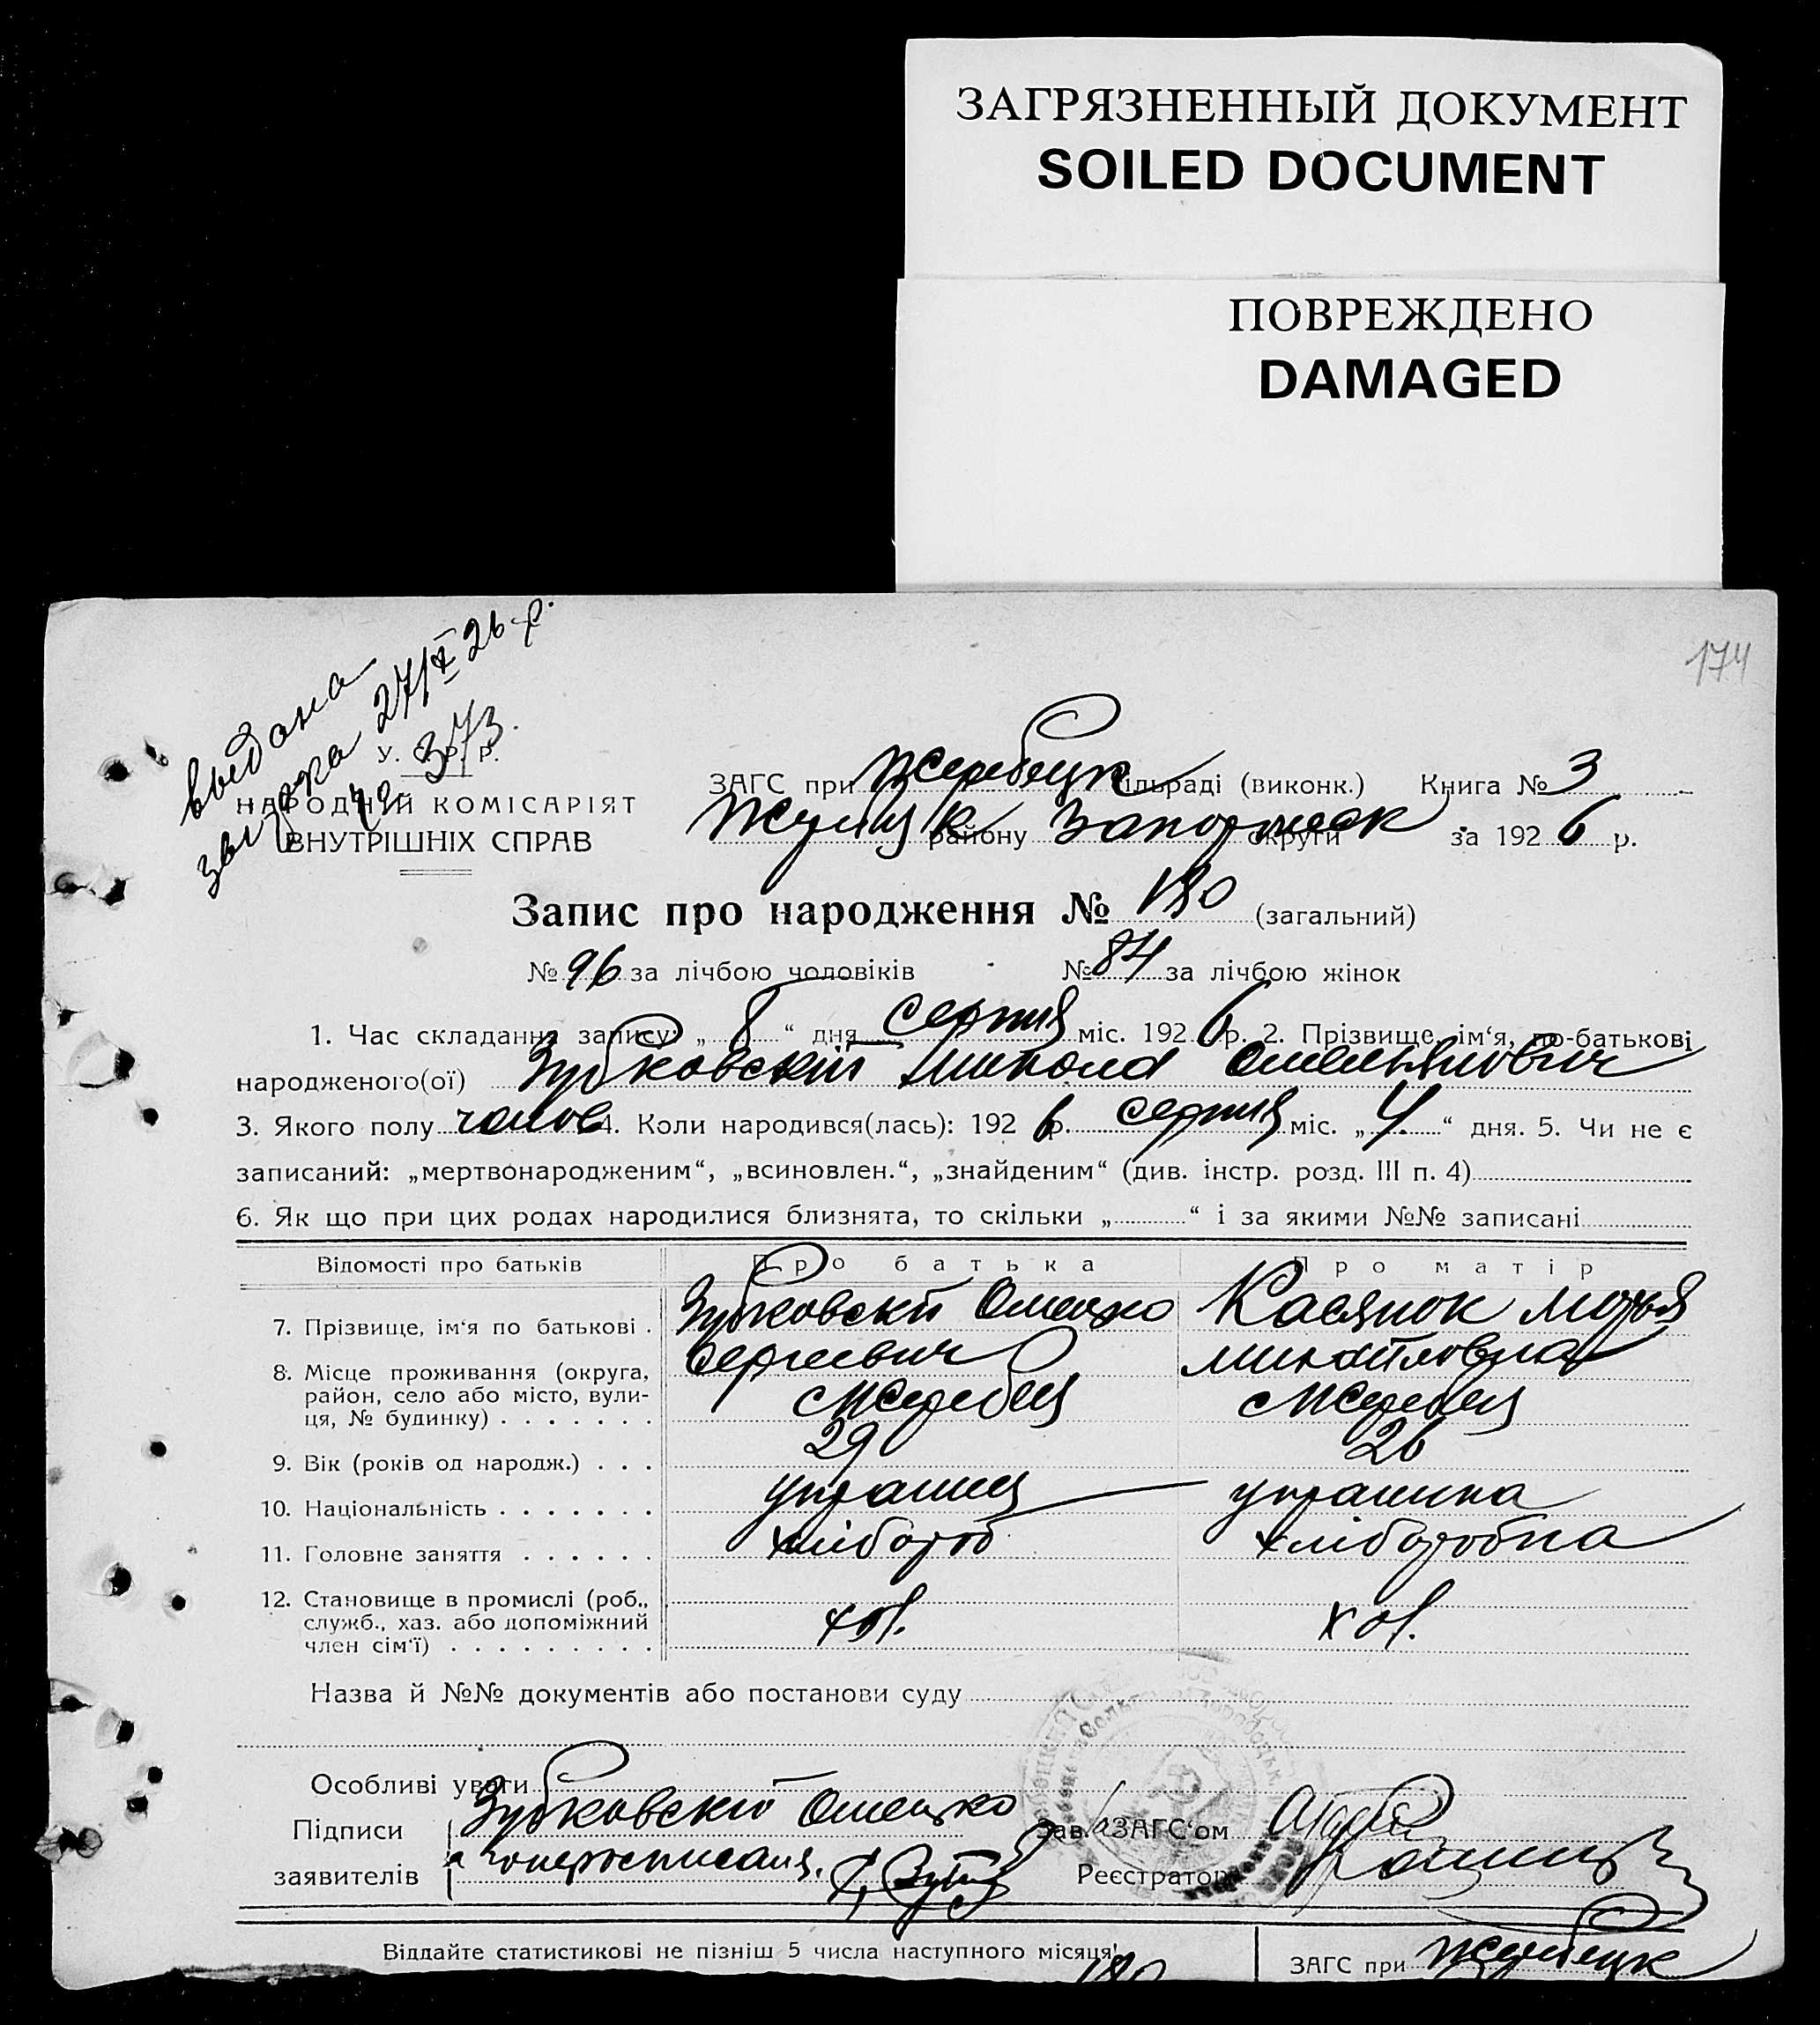 ЗАГРЯЗНЕННЫЙ ДОКУМЕНТ
SOILED DOCUMENT
ПОВРЕЖДЕНО
DAMAGED
174
выдана
27/X 26 р.
373.
У. С. Р. Р.
НАРОДНІЙ КОМІСАРІЯТ
ВНУТРІШНІХ СПРАВ
ЗАГС при Жеребецк сільраді (виконк.) Книга № 3
району Запорожск округи за 1926 р.
Запис про народження № 180 (загальний)
№ 96 за лічбою чоловіків № 84 за лічбою жінок
1. Час складання запису: „ 8 “ дня серпня міс. 1926 р. 2. Прізвище, ім‘я, по-батькові
народженого(ої) Зубковскій Микола Омелянович
3. Якого полу чолов 4. Коли народився(лась): 1926 р. серпня міс. „ 4 “ дня. 5. Чи не є
записаний: „мертвонародженим“, „всиновлен.“, „знайденим“ (див. інстр. розд. III п. 4)
6. Як що при цих родах народилися близнята, то скільки „ “ і за якими №№ записані
Відомості про батьків Про батька Про матір
7. Прізвище, ім‘я по батькові . Зубковскй Омелько Касянок Марья
Сергиевич Михайловна
8. Місце проживання (округа,
район, село або місто, вули-
ця, № будинку) . . . . . . . с Жеребец с Жеребец
9. Вік (років од народж.) . . . 29 26
10. Національність . . . . . . . украинец украинка
11. Головне заняття . . . . . . хлібороб хлібороbка
12. Становище в промислі (роб.,
служб., хаз. або допоміжний
член сім‘ї) . . . . . . . . . хоз. хоз.
Назва й №№ документів або постанови суду
Особливі уваги
Підписи Зубковскій Омелько Зав. ЗАГС‘ом
заявителів Реєстратор
Віддайте статистикові не пізніш 5 числа наступного місяця!
180
ЗАГС при Жеребецк